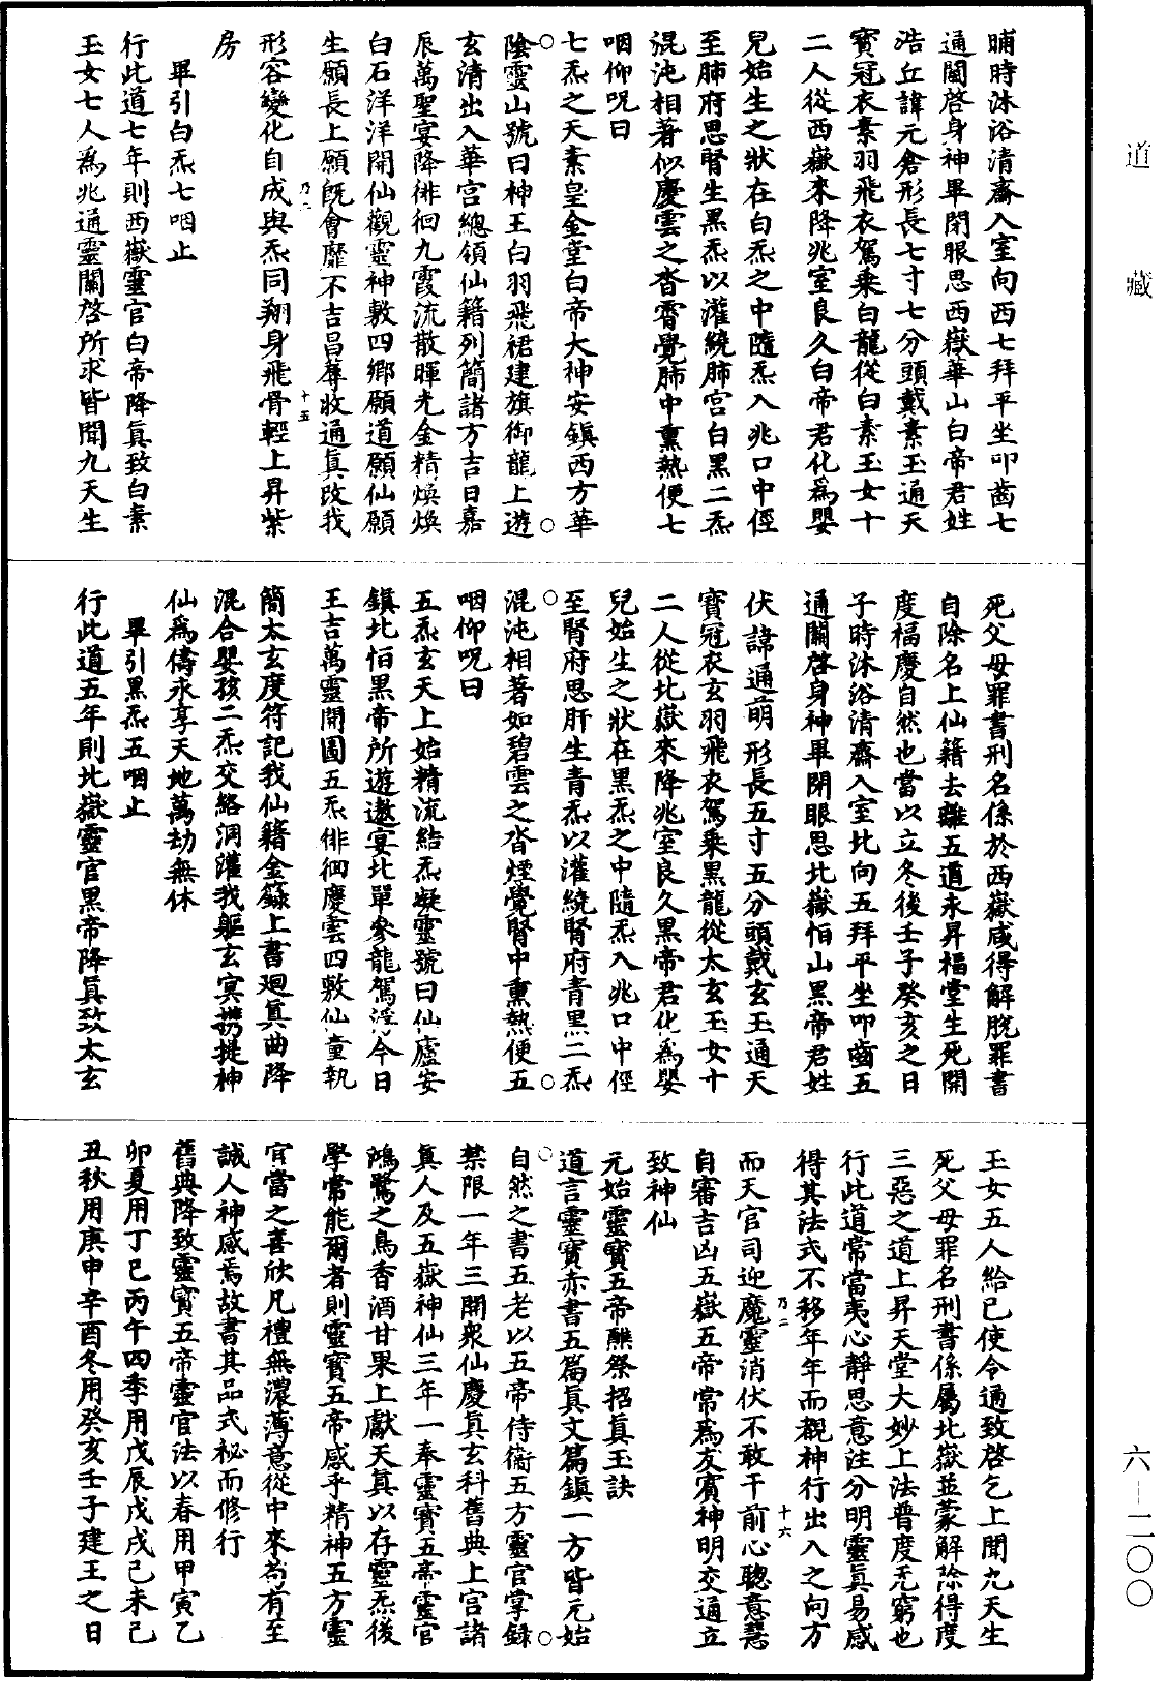 道藏
六－二〇〇
晡時沐浴清齋入室向西七拜平坐叩齒七
通閣啓身神畢閉眼思西嶽華山白帝君姓
浩丘諱元倉形長七寸七分頭戴素玉通天
寶冠衣素羽飛衣駕乗白龍從白素玉女十
二人從西嶽來降兆室良久白帝君化爲嬰
兒始生之狀在白炁之中隨炁入兆口中徑
至肺府思腎生黑炁以灌繞肺宮白黑二炁
混沌相著似慶雲之沓霄覺肺中熏熱便七
咽仰呪曰
七炁之天素皇金堂白帝大神安鎮西方華
陰靈山號曰神王白羽飛裙建旗御龍上遊
玄清出入華宮總領仙籍列簡諸方吉日嘉
辰萬聖宴降徘徊九霞流散暉光金精煥煥
白石洋洋開仙觀靈神敷四鄉願道願仙願
生願長上願旣會靡不吉昌蓐收通真改我
乃二
十五
形容變化自成與炁同翔身飛骨輕上昇紫
房
畢引白炁七咽止
行此道七年則西嶽靈官白帝降真致白素
玉女七人爲兆通靈關啓所求皆聞九天生
死父母罪書刑名係於西嶽咸得解脫罪書
自除名上仙籍去離五道未昇福堂生死開
度福慶自然也當以立冬後壬子癸亥之日
子時沐浴清齋入室北向五拜平坐叩齒五
通關啓身神畢閉眼思北嶽恒山黑帝君姓
伏諱通萌形長五寸五分頭戴玄玉通天
寶冠衣玄羽飛衣駕乗黑龍從太玄玉女十
二人從北嶽來降兆室良久黑帝君化爲嬰
兒始生之狀在黑炁之中隨炁入兆口中徑
至腎府思肝生青炁以灌繞腎府青黑二炁
混沌相著如碧雲之沓煙覺腎中熏熱便五
咽仰呪曰
五炁玄天上始精流結炁凝靈號曰仙廬安
鎮北恒黑帝所遊遨宴北單參龍駕浮今日
王吉萬靈開圖五炁徘徊慶雲四敷仙童執
簡太玄度符記我仙籍金籙上書廻真曲降
混合嬰孩二炁交絡洞灌我軀玄冥攜提神
仙爲儔永享天地萬劫無休
畢引黑炁五咽止
行此道五年則北嶽靈官黑帝降真致太玄
玉女五人給已使令通致啓乞上聞九天生
死父母罪名刑書係屬北嶽並蒙解除得度
三惡之道上昇天堂大妙上法普度无窮也
行此道常當夷心靜思意注分明靈真易感
得其法式不移年年而覩神行出入之向方
乃二
十六
而天官司迎魔靈消伏不敢干前心聰意慧
自審吉凶五嶽五帝常爲友賓神明交通立
致神仙
元始靈寶五帝醮祭招真玉訣
道言靈寶赤書五篇真文篇鎮一方皆元始
自然之書五老以五帝侍衞五方靈官掌錄
禁限一年三開衆仙慶真玄科舊典上宮諸
真人及五嶽神仙三年一奉靈寶五帝靈官
鴻鷺之鳥香酒甘果上獻天真以存靈炁後
學常能爾者則靈寶五帝感乎精神五方靈
官當之喜欣凡禮無濃薄意從中來苟有至
誠人神感焉故書其品式秘而修行
舊典降致靈寶五帝靈官法以春用甲寅乙
卯夏用丁巳丙午四季用戊辰戊戌己未己
丑秋用庚申辛酉冬用癸亥壬子建王之日